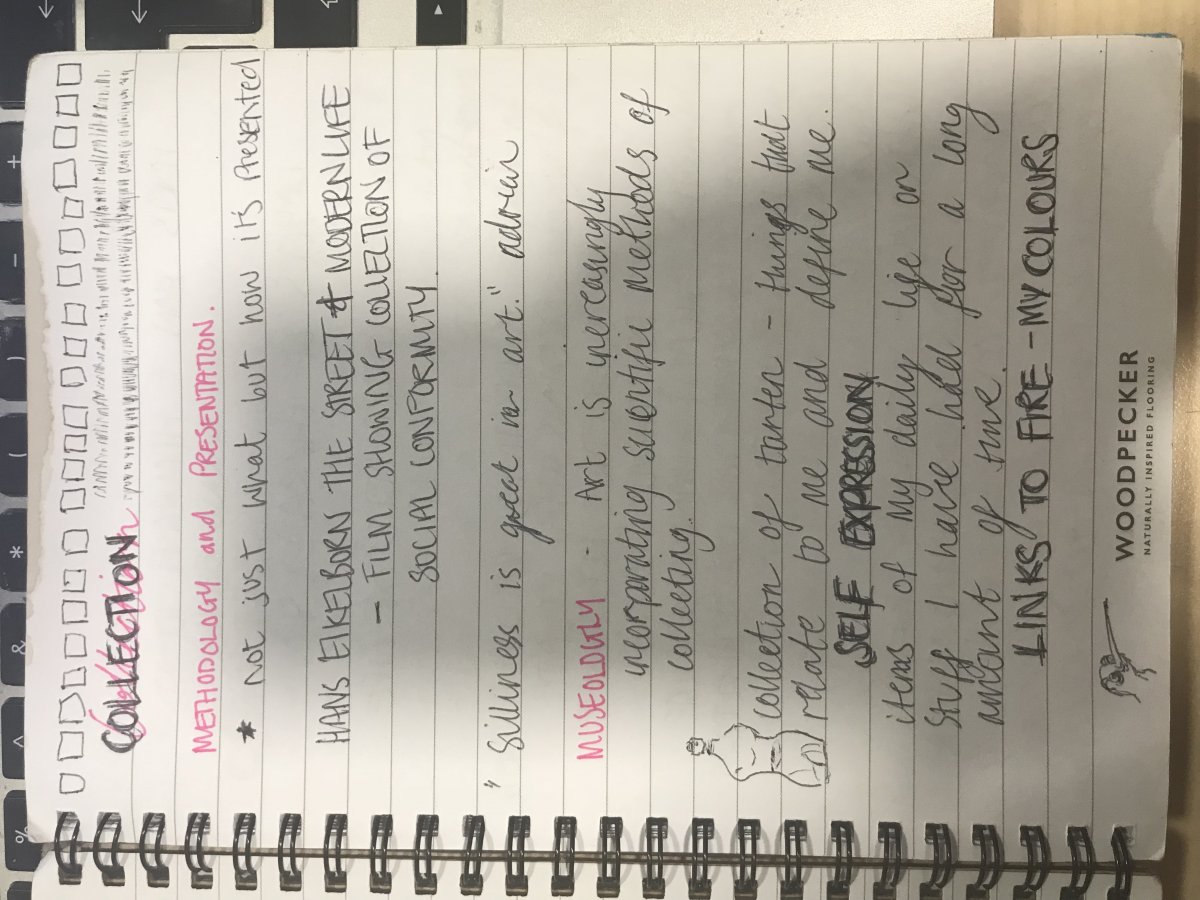 COLLECTION
METHODOLOGY and PRESENTATION.
* Not just what but how it's presented
HANS EIKELBORN THE STREET & MODERN LIFE
- FILM SHOWING COLLECTION OF
SOCIAL CONFORMITY.
" Silliness is great in art." adrian
MUSEOLOGLY - Art is increasingly
incorporating scientific methods of
collecting.
collection of tarten - things that
relate to me and define me.
SELF EXPRESSION
items of my daily life on
stuff I have held for a long
amount of time.
LINKS TO FIRE - MY COLOURS
WOODPECKER
NATURALLY INSPIRED FLOORING
%
^
&
*
(
)
-
+